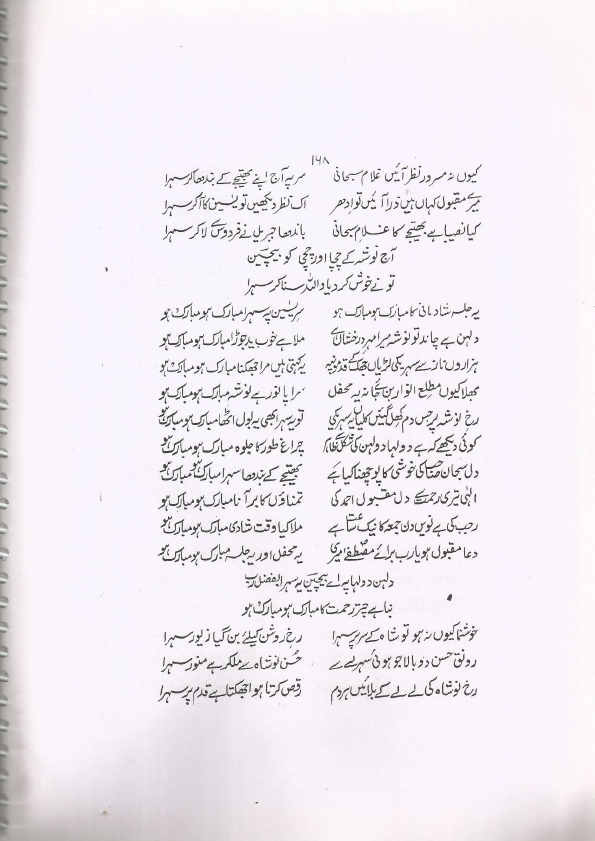 ۱۶۸
کیوں نہ مسرور نظر آئیں غلام سبحانی سر پہ آج اپنے بھتیجے کے بندھا کر سہرا
میرے مقبول کہاں ہیں ذرا آئیں تو ادھر اک نظر دیکھیں تو یٰسین کا آ کر سہرا
کیا نصیبا ہے بھتیجے کا غلام سبحانی باندھا جبریل نے فردوس سے لا کر سہرا
آج نوشہ کے چچا اور چچی کو بیچین
تو نے خوش کر دیا واللہ سنا کر سہرا
یہ جلسہ شادمانی کا مبارک ہو مبارک ہو سر یٰسین پہ سہرا مبارک ہو مبارک ہو
دلہن ہے چاند تو نوشہ میرا مہر درخشاں ہے ملا ہے خوب یہ جوڑا مبارک ہو مبارک ہو
ہزاروں ناز سے سہرے کی لڑیاں جھک کے قدموں پہ یہ کہتی ہیں مرا جھکنا مبارک ہو مبارک ہو
بھلا کیوں مطلع انوار بن جائے نہ یہ محفل سراپا نور ہے نوشہ مبارک ہو مبارک ہو
رخ نوشہ پر جس دم کھل گئیں کلیاں یہ سہرے کی تو یہ سہرا بھی یہ بول اٹھا مبارک ہو مبارک ہو
کوئی دیکھے کہ ہے دولہا دولہن کی شکل سے ظاہر چراغ طور کا جلوہ مبارک ہو مبارک ہو
دل سبحان صاحب کی خوشی کا پوچھنا کیا ہے بھتیجے کے بندھا سہرا مبارک ہو مبارک ہو
الٰہی تیری رحمت سے دل مقبول احمد کی تمناؤں کا بر آنا مبارک ہو مبارک ہو
رجب کی ہے نویں دن جمعہ کا نیک ہے ملا کیا وقت شادی مبارک ہو مبارک ہو
دعا مقبول ہو یارب برائے مصطفےٰ میری یہ محفل اور یہ جلسہ مبارک ہو مبارک ہو
دلہن دولہا پہ اے بیچین یہ سہرا بفضل رب
بنا ہے چتر رحمت کا مبارک ہو مبارک ہو
خوشنما کیوں نہ ہو نوشاہ کے سر پر سہرا رخ روشن کیلئے بن گیا زیور سہرا
رونق حسن دوبالا جو ہوئی سہرے سے حسن نوشاہ سے مل کر ہے منور سہرا
رخ نوشاہ کی لے لے کے بلائیں ہر دم رقص کرتا ہوا جھکتا ہے قدم پر سہرا